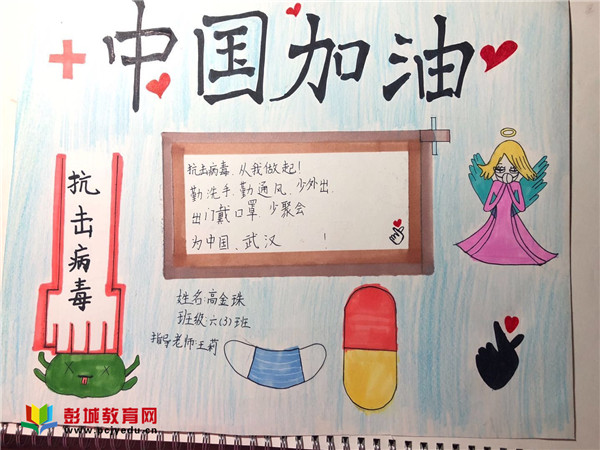 中国加油
抗击病毒
抗击病毒、从我做起!
勤洗手、勤通风、少外出、
出门戴口罩、少聚会
为中国、武汉 !
姓名:高金珠
班级:六(3)班
指导老师:王莉
彭城教育网
www.pcjyedu.cn